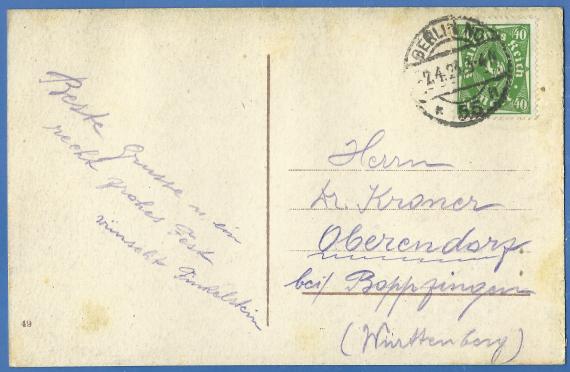 Beste Grüsse u. ein
recht frohes Fest
wünscht Finkelstein
49
BERLIN NO
2.4.2
55
40 40
Deutsches Reich
40 40
Herrn
Dr. Kroner
Oberendorf.
bei/ Boppfingen
(Württenberg)